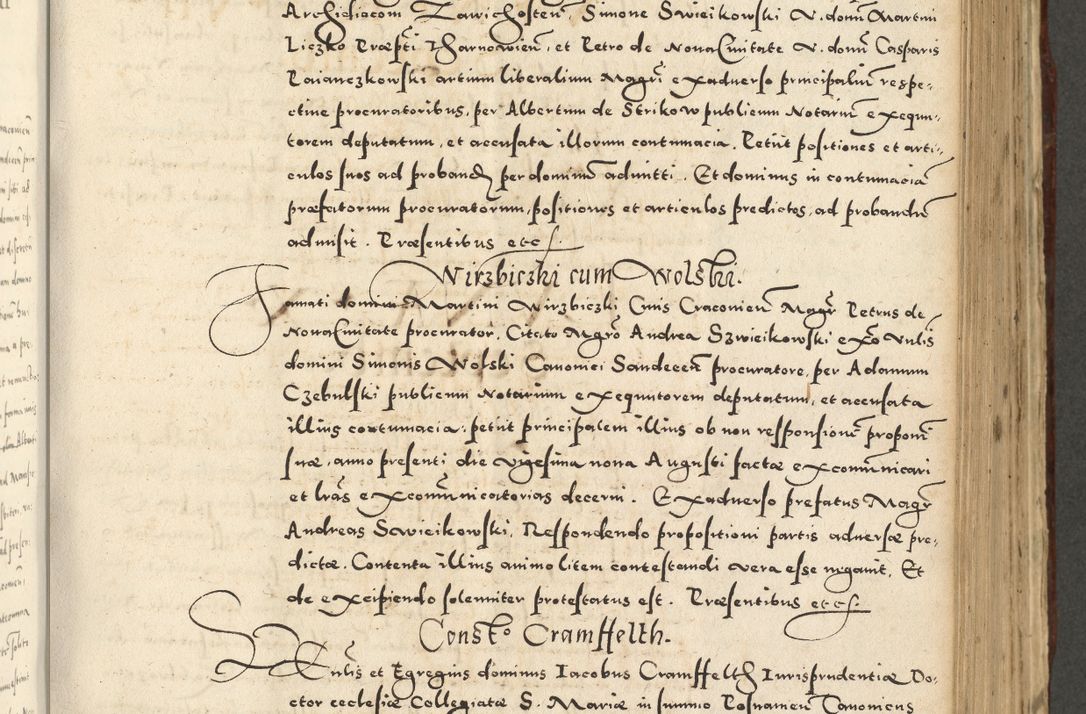 Archidiacom Zawichosten̄, Simone Swieikowski V. domī Martini
Liczko Præpti Tharnowien̄, et Petro de Nova Civitate V. domī Casparis
Raianczkowski artium liberalium Magr̄i ex adverso principaliū respe-
ctive procuratoribus, per Albertum de Strikow publicum Notariū exequu-
torem deputatum, et accusata illorum contumacia. Petiit positiones et arti-
culos suos ad proband̄ per dominū admitti. Et dominus in contumaciā
præfatorum procuratorum, positiones et articulos predictos, ad probandū
admisit. Præsentibus etc.
Wirzbiczki cum Wolski.
Famati domini Martini Wirzbiczki Civis Cracovien̄ Magr̄ Petrus de
Nova Civitate procurator, Citato Mgr̄o Andrea Szwieikowski exō Vnlis
domini Simonis Wolski Canonici Sandecen̄ procuratore, per Adamum
Czebulski publicum Notarium exequutorem deputatum, et accusata
illius contumacia, petiit principalem illius ob non responsionē proponī
suæ, anno presenti die vigesima nona Augusti factæ excom̄unicari
et lr̄as excom̄unicatorias decerni. Ex adverso prefatus Magr̄
Andreas Swieikowski, Respondendo propositioni partis adversæ præ-
dictæ. Contenta illius animo litem contestandi vera esse negavit, Et
de excipiendo solemniter protestatus est. Præsentibus etc.
Constō Cramffelth.
Vn̄lis et Egregius dominus Iacobus Cramffelth Iurisprudentiæ Do-
ctor ecclesiæ Collegiatæ S. Mariæ in summo Posnanien̄ Canonicus